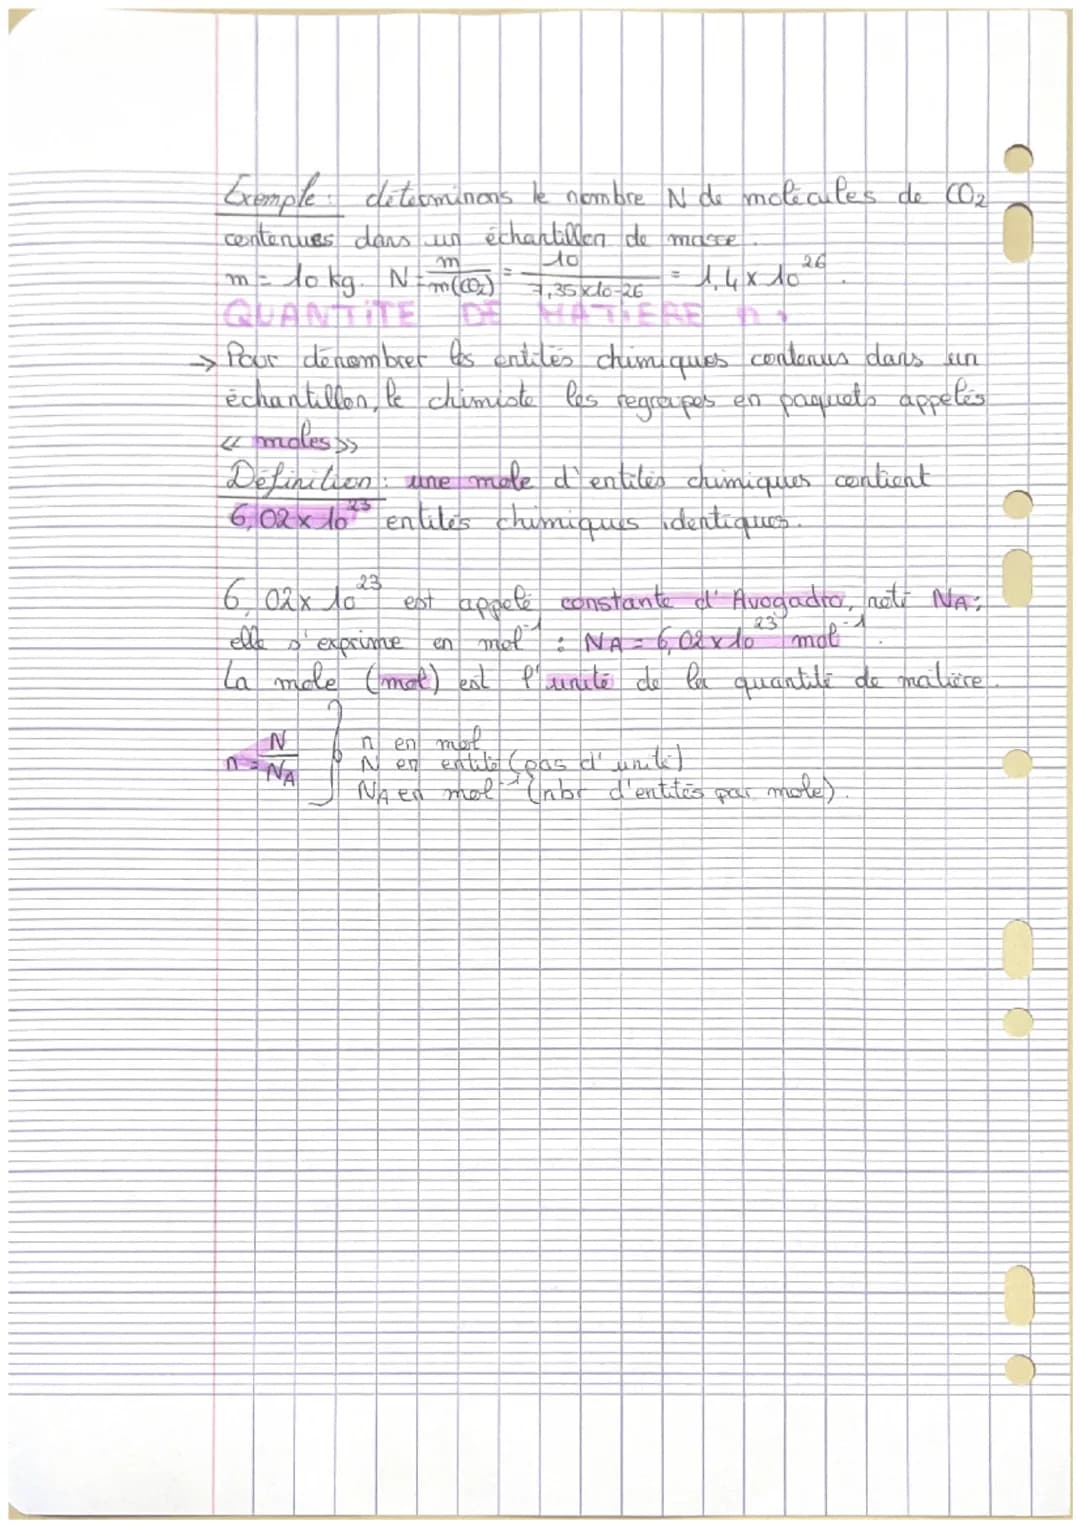 Exemple : déterminons le nombre N de molécules de CO₂
contenues dans un échantillon de masse.
m = 10 kg. N = m/m(CO₂) = 10/7,35x10-26 = 1,4 x 10²⁶.
QUANTITÉ DE MATIERE n :
→ Pour dénombrer les entités chimiques contenus dans un
échantillon, le chimiste les regroupes en paquets appelés
<< moles >>
Définition : une mole d'entités chimiques contient
6,02 x 10²³ entités chimiques identiques.
6,02 x 10²³ est appelé constante d'Avogadro, noté NA ;
elle s'exprime en mol⁻¹ : NA = 6,02 x 10²³ mol⁻¹.
La mole (mol) est l'unité de la quantité de matière.
n = N/NA
n en mol
N en entité (pas d'unité)
NA en mol⁻¹ (nbr d'entités par mole).